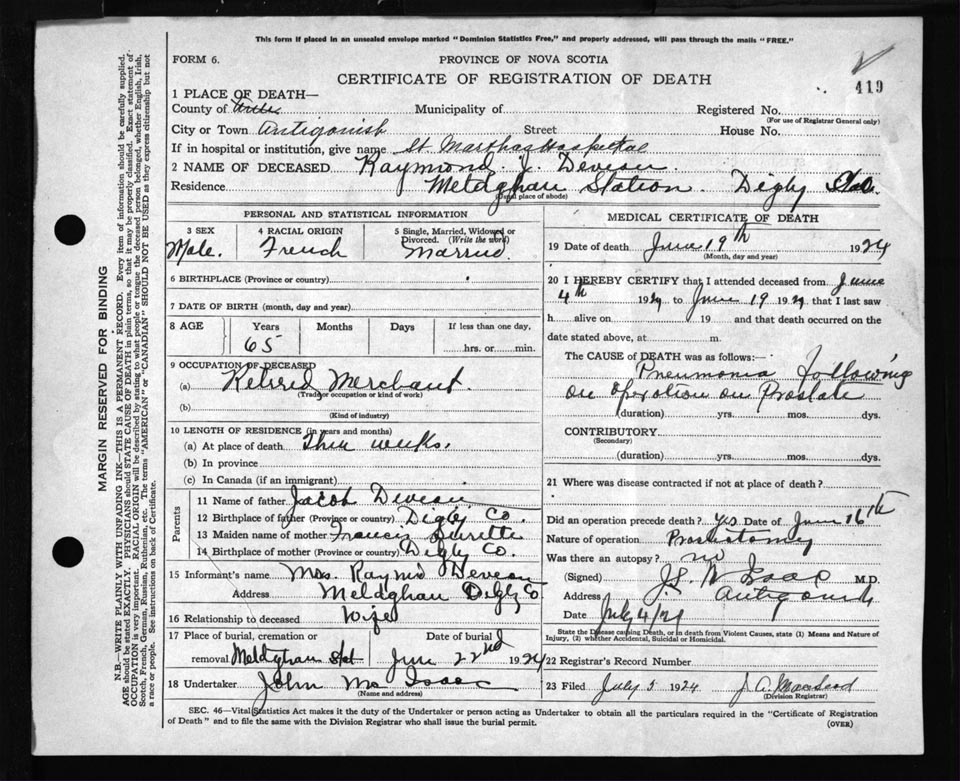 This form if placed in an unsealed envelope marked "Dominion Statistics Free," and properly addressed, will pass through the mails "FREE."
FORM 6.
PROVINCE OF NOVA SCOTIA
CERTIFICATE OF REGISTRATION OF DEATH
419
1 PLACE OF DEATH—
County of Municipality of Registered No.
(For use of Registrar General only)
City or Town Antigonish Street House No.
If in hospital or institution, give name St Marthas Hospital
2 NAME OF DECEASED Raymond J. Deveau
Residence Metaghan Station. Digby
(Usual place of abode)
PERSONAL AND STATISTICAL INFORMATION
3 SEX
Male.
4 RACIAL ORIGIN
French
5 Single, Married, Widowed or
Divorced. (Write the word)
Married.
6 BIRTHPLACE (Province or country)
7 DATE OF BIRTH (month, day and year)
8 AGE Years Months Days If less than one day,
65 hrs. or min.
9 OCCUPATION OF DECEASED
(a) Retired Merchant.
(Trade or occupation or kind of work)
(b)
(Kind of industry)
10 LENGTH OF RESIDENCE (in years and months)
(a) At place of death weeks.
(b) In province
(c) In Canada (if an immigrant)
Parents
11 Name of father Jacob Deveau
12 Birthplace of father (Province or country) Digby Co.
13 Maiden name of mother Francis
14 Birthplace of mother (Province or country) Digby Co.
15 Informant's name Mrs. Raymd Deveau
Address Metaghan Digby Co
16 Relationship to deceased Wife
17 Place of burial, cremation or Date of burial
removal Metaghan Stat June 22nd 1924
18 Undertaker John Mc Isaac
(Name and address)
MEDICAL CERTIFICATE OF DEATH
19 Date of death June 19th 1924
(Month, day and year)
20 I HEREBY CERTIFY that I attended deceased from June
4th 1924 to June 19 1924 that I last saw
h alive on 19 and that death occurred on the
date stated above, at m.
The CAUSE OF DEATH was as follows:—
Pneumonia following
an operation on Prostate
(duration) yrs. mos. dys.
CONTRIBUTORY
(Secondary)
(duration) yrs. mos. dys.
21 Where was disease contracted if not at place of death?
Did an operation precede death? yes Date of June 16th
Nature of operation
Was there an autopsy? no
(Signed) Isaac M.D.
Address Antigonish
Date July 4/24
State the Disease causing Death, or in death from Violent Causes, state (1) Means and Nature of
Injury, (2) whether Accidental, Suicidal or Homicidal.
22 Registrar's Record Number
23 Filed July 5 1924 J. A.
(Division Registrar)
SEC. 46—Vital Statistics Act makes it the duty of the Undertaker or person acting as Undertaker to obtain all the particulars required in the "Certificate of Registration
of Death" and to file the same with the Division Registrar who shall issue the burial permit.
(OVER)
MARGIN RESERVED FOR BINDING
N.B.—WRITE PLAINLY WITH UNFADING INK—THIS IS A PERMANENT RECORD. Every item of information should be carefully supplied.
AGE should be stated EXACTLY. PHYSICIANS should STATE CAUSE OF DEATH in plain terms, so that it may be properly classified. Exact statement of
OCCUPATION is very important. RACIAL ORIGIN will be described by stating to what people or tongue the deceased person belonged, whether English, Irish,
Scotch, French, German, Russian, Ruthenian, etc. The terms "AMERICAN" or "CANADIAN" SHOULD NOT BE USED as they express citizenship but not
a race or people. See instructions on back of Certificate.